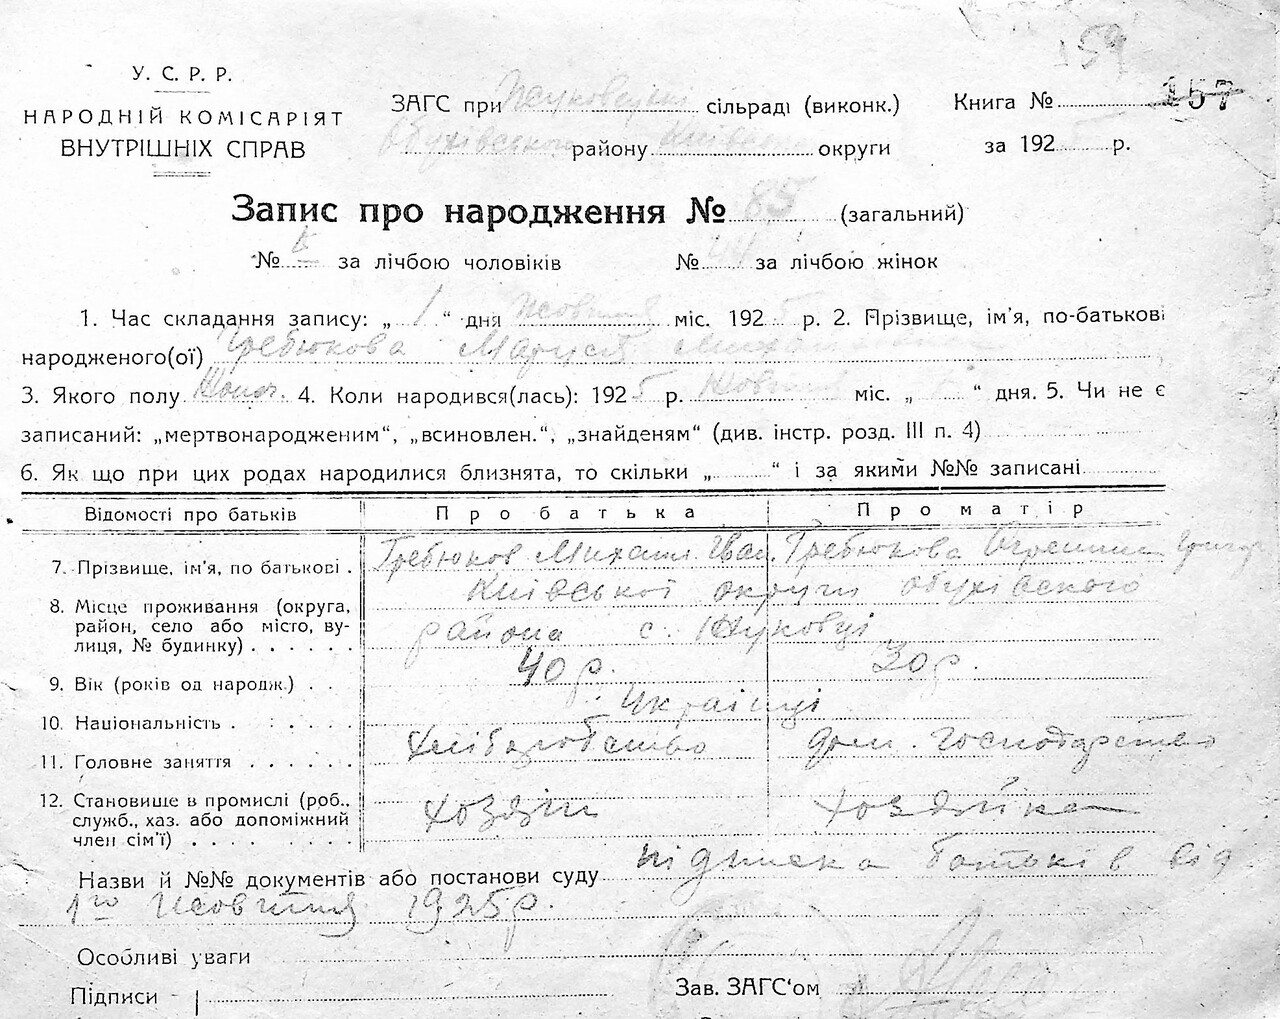 159
У. С. Р. Р.
НАРОДНІЙ КОМІСАРІЯТ
ВНУТРІШНІХ СПРАВ
ЗАГС при Жуковецькій сільраді (виконк.) Книга № 157
Обухівського району Київсько округи за 1925 р.
Запис про народження № 85 (загальний)
№ за лічбою чоловіків № 44 за лічбою жінок
1. Час складання запису: „ 1 “ дня Жовтня міс. 1925 р. 2. Прізвище, ім'я, по-батькові
народженого(ої) Гребюкова Маруся Михайловна
3. Якого полу Жоноч. 4. Коли народився(лась): 1925 р. Жовтня міс. „ “ дня. 5. Чи не є
записаний: „мертвонародженим“, „всиновлен.“, „знайденям“ (див. інстр. розд. III п. 4)
6. Як що при цих родах народилися близнята, то скільки „ “ і за якими №№ записані
Відомості про батьків Про батька Про матір
7. Прізвище, ім'я, по батькові . Гребюков Михаил Іван. Гребюкова Григор
8. Місце проживання (округа, Київської округи обухівского
район, село або місто, ву- района с. Жуковці
лиця, № будинку) . . . . . .
9. Вік (років од народж.) . . 40 р. 30 р.
10. Національність . : . . . . Українці
11. Головне заняття . . . . . . хліборобство дом. господарство
12. Становище в промислі (роб., хозяін хозяйка
служб., хаз. або допоміжний
член сім'ї) . . . . . . . . .
Назви й №№ документів або постанови суду підписка батьків від
1го Жовтня 1925 р.
Особливі уваги
Підписи - Зав. ЗАГС'ом